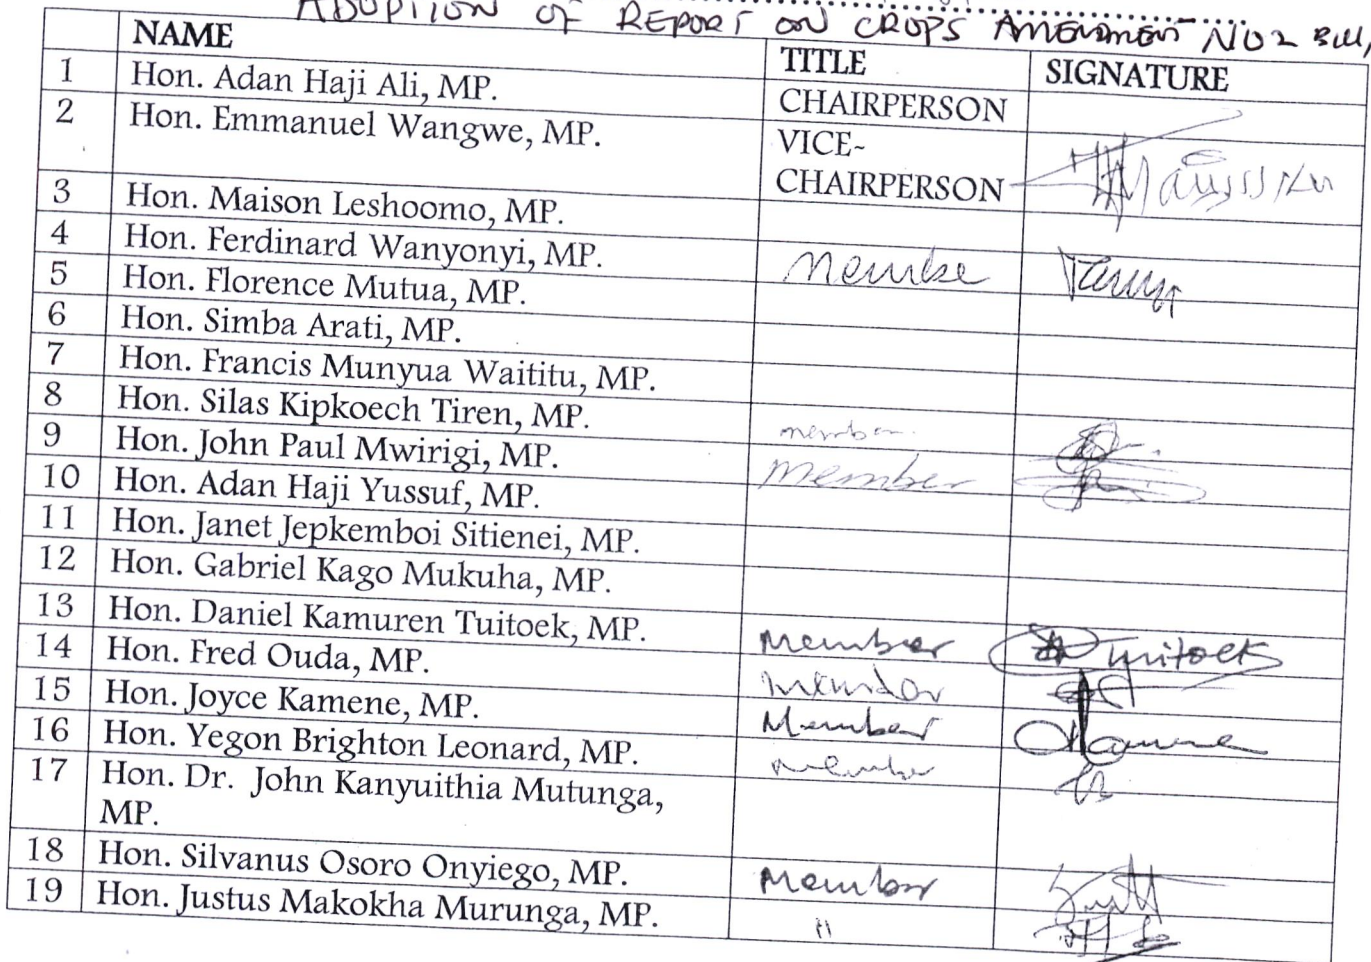 ADOPTION OF REPORT ON CROPS AMENDMENT NO 2 Bill,
NAME TITLE SIGNATURE
1 Hon. Adan Haji Ali, MP. CHAIRPERSON
2 Hon. Emmanuel Wangwe, MP. VICE-
CHAIRPERSON
3 Hon. Maison Leshoomo, MP.
4 Hon. Ferdinard Wanyonyi, MP. Membe
5 Hon. Florence Mutua, MP.
6 Hon. Simba Arati, MP.
7 Hon. Francis Munyua Waititu, MP.
8 Hon. Silas Kipkoech Tiren, MP. member
9 Hon. John Paul Mwirigi, MP. member
10 Hon. Adan Haji Yussuf, MP.
11 Hon. Janet Jepkemboi Sitienei, MP.
12 Hon. Gabriel Kago Mukuha, MP.
13 Hon. Daniel Kamuren Tuitoek, MP. Member
14 Hon. Fred Ouda, MP. member
15 Hon. Joyce Kamene, MP. Member
16 Hon. Yegon Brighton Leonard, MP. member
17 Hon. Dr. John Kanyuithia Mutunga,
MP.
18 Hon. Silvanus Osoro Onyiego, MP. Member
19 Hon. Justus Makokha Murunga, MP. "